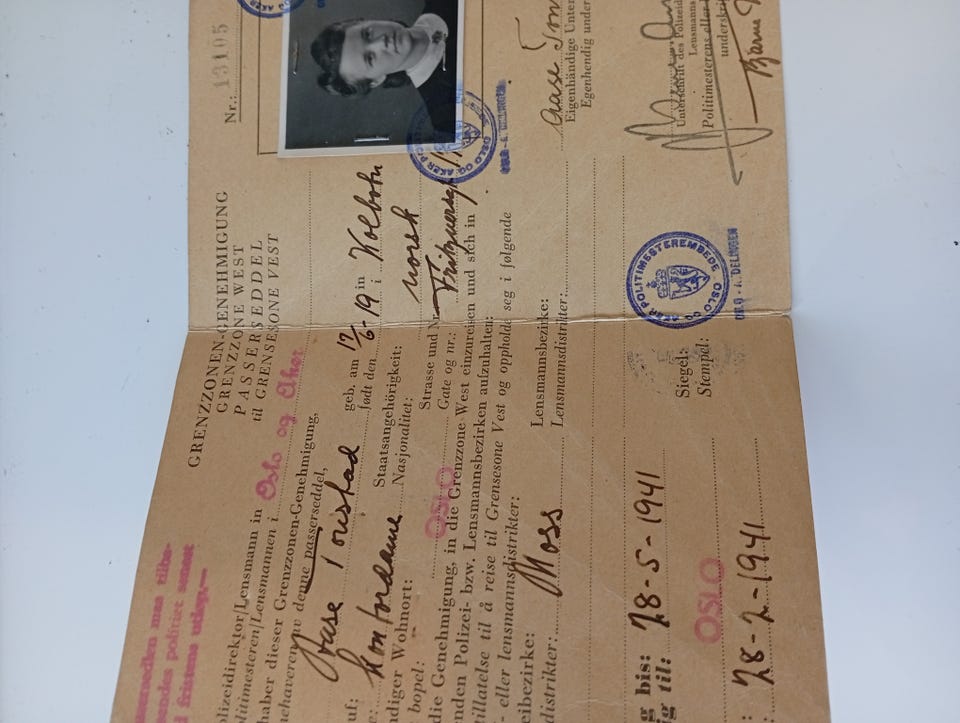 Nr.: 13105
GRENZZONEN-GENEHMIGUNG
GRENZZONE WEST
PASSERSEDDEL
til GRENSESONE VEST
sendes politiet senest
fristens utløp.
lizeidirektor/Lensmann in
Oslo og Aker
litimesteren/Lensmannen i
haber dieser Grenzzonen-Genehmigung,
nehaveren av denne passerseddel,
Aase Tonstad
geb. am 17/6-19 in Kolbotn
født den i
uf: Kontordame
Staatsangehörigkeit: norsk
Nasjonalitet:
diger Wohnort: OSLO
bopel:
Strasse und Nr.
Gate og nr.:
die Genehmigung, in die Grenzzone West einzureisen und sich in
nden Polizei- bzw. Lensmannsbezirken aufzuhalten:
tillatelse til å reise til Grensesone Vest og oppholde seg i følgende
- eller lensmannsdistrikter:
eibezirke: Moss
distrikter:
Lensmannsbezirke:
Lensmannsdistrikter:
g bis: 28-5-1941
g til:
OSLO
28-2-1941
Siegel:
Stempel:
OSLO OG AKER POLITIMESTEREMBEDE
Aase Ton
Eigenhändige Unter
Egenhendig under
Unterschrift des Polizeidi
Lensmanns
Politimesterens eller
underskri
Bjarne